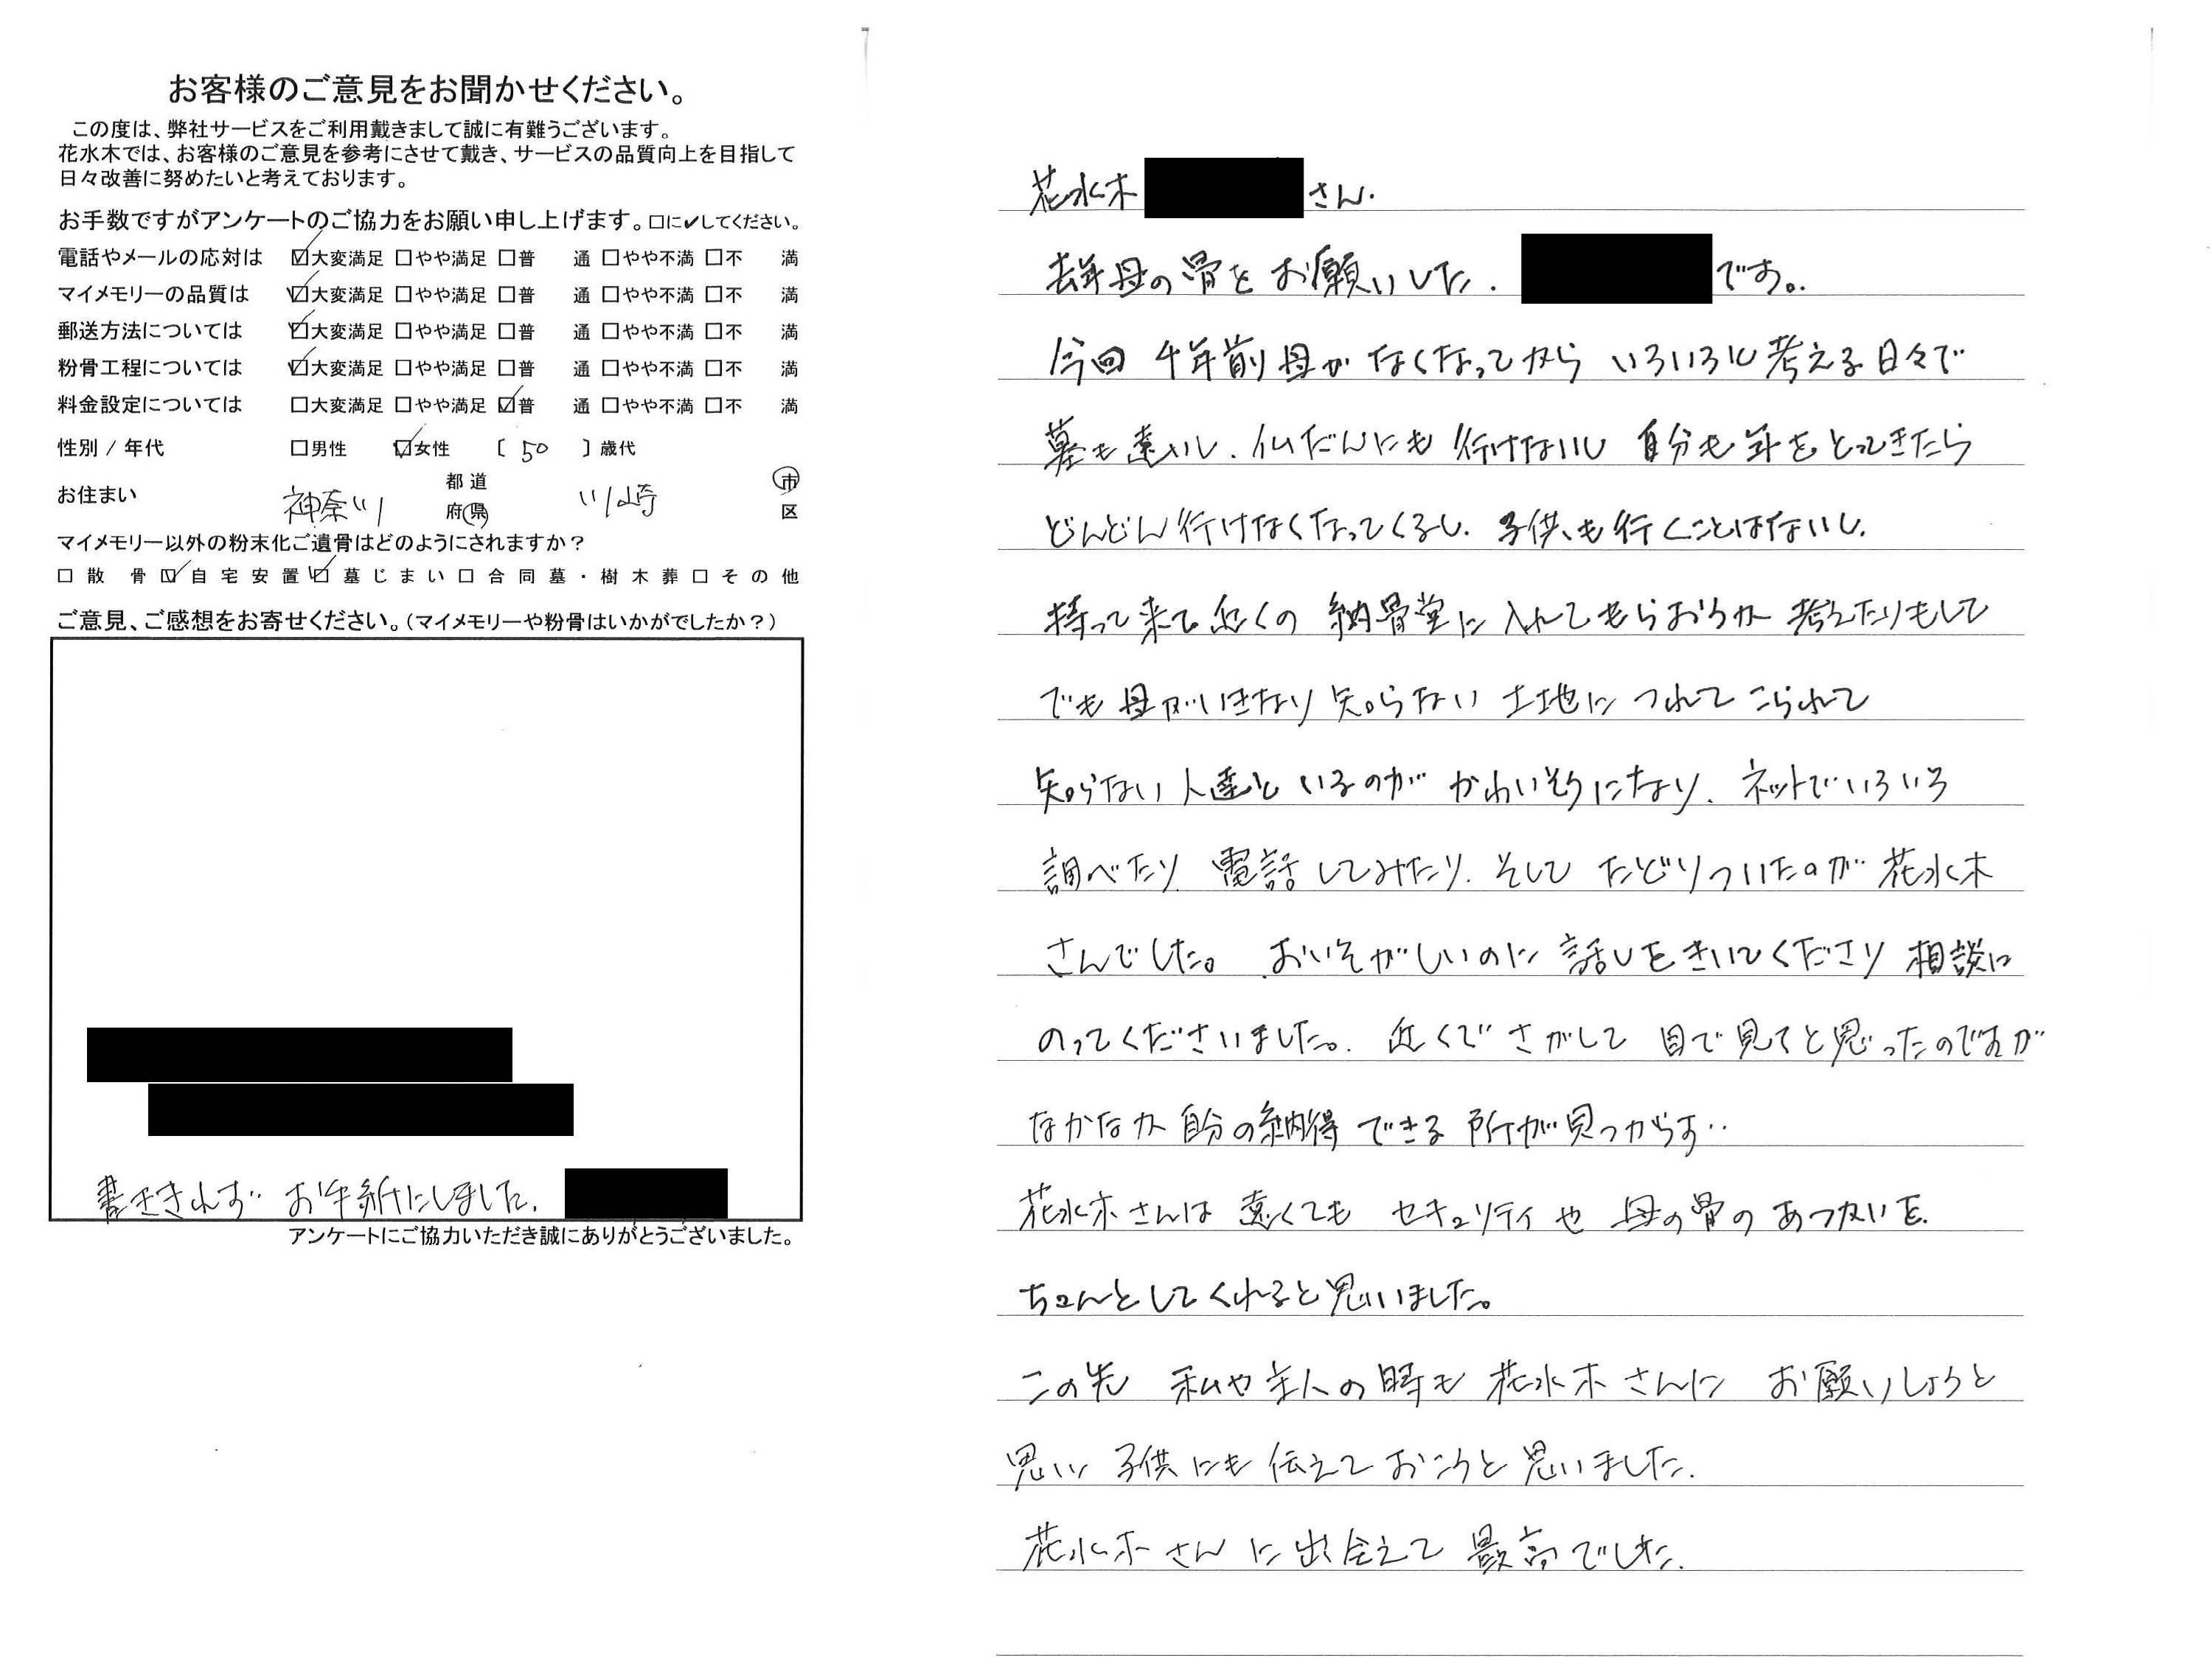 お客様のご意見をお聞かせください。
この度は、弊社サービスをご利用戴きまして誠に有難うございます。
花水木では、お客様のご意見を参考にさせて戴き、サービスの品質向上を目指して
日々改善に努めたいと考えております。
お手数ですがアンケートのご協力をお願い申し上げます。□に✔してください。
電話やメールの応対は ☑大変満足 □やや満足 □普 通 □やや不満 □不 満
マイメモリーの品質は ☑大変満足 □やや満足 □普 通 □やや不満 □不 満
郵送方法については ☑大変満足 □やや満足 □普 通 □やや不満 □不 満
粉骨工程については ☑大変満足 □やや満足 □普 通 □やや不満 □不 満
料金設定については □大変満足 □やや満足 ☑普 通 □やや不満 □不 満
性別 / 年代 □男性 ☑女性 〔 50 〕歳代
お住まい 神奈川 都道府県 川崎 市区
マイメモリー以外の粉末化ご遺骨はどのようにされますか？
□散骨 ☑自宅安置 ☑墓じまい □合同墓・樹木葬 □その他
ご意見、ご感想をお寄せください。（マイメモリーや粉骨はいかがでしたか？）
書ききれず お手紙にしました。
アンケートにご協力いただき誠にありがとうございました。
花水木 さん.
去年母の骨をお願いした. です。
今回 千年前母がなくなってから いろいろに考える日々で
墓も遠いし、仏だんにも行けないし 自分も年をとってきたら
どんどん行けなくなってくるし、子供も行くことはないし、
持って来て近くの納骨堂に入れてもらおうか 考えたりもして
でも母がいきなり知らない土地につれてこられて
知らない人達といるのがかわいそうになり、ネットでいろいろ
調べたり 電話してみたり、そして たどりついたのが花水木
さんでした。おいそがしいのに 話しをきいてくださり 相談に
のってくださいました。近くでさがして 目で見てと思ったのですが
なかなか自分の納得できる所が見つからず
花水木さんは遠くても セキュリティや 母の骨のあつかいを
ちゃんとしてくれると思いました。
この先 私や主人の時も 花水木さんに お願いしようと
思い 子供にも伝えておこうと思いました。
花水木さんに出会えて最高でした。